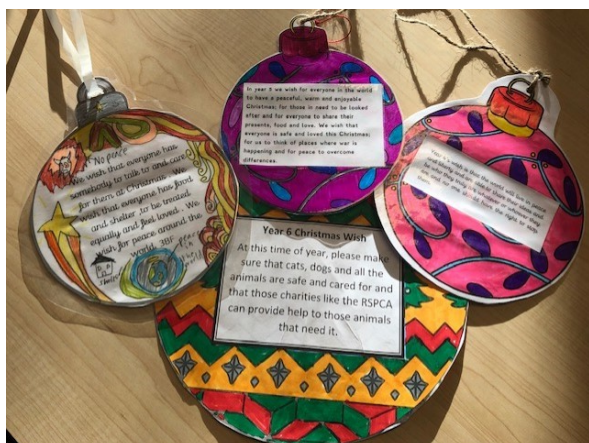 No peace
We wish that everyone has
somebody to talk to and care
for them at Christmas. We
wish that everyone has food
and shelter, to be treated
equally and feel loved. We
wish for peace around the
world. 3BF
peace
in
the
In year 3 we wish for everyone in the world
to have a peaceful, warm and enjoyable
Christmas; for those in need to be looked
after and for everyone to share their
presents, food and love. We wish that
everyone is safe and loved this Christmas;
for us to think of places where war is
happening and for peace to overcome
differences.
wish is that the world will live in peace
be who they truly are
and no one will
them.
Year 6 Christmas Wish
At this time of year, please make
sure that cats, dogs and all the
animals are safe and cared for and
that those charities like the RSPCA
can provide help to those animals
that need it.